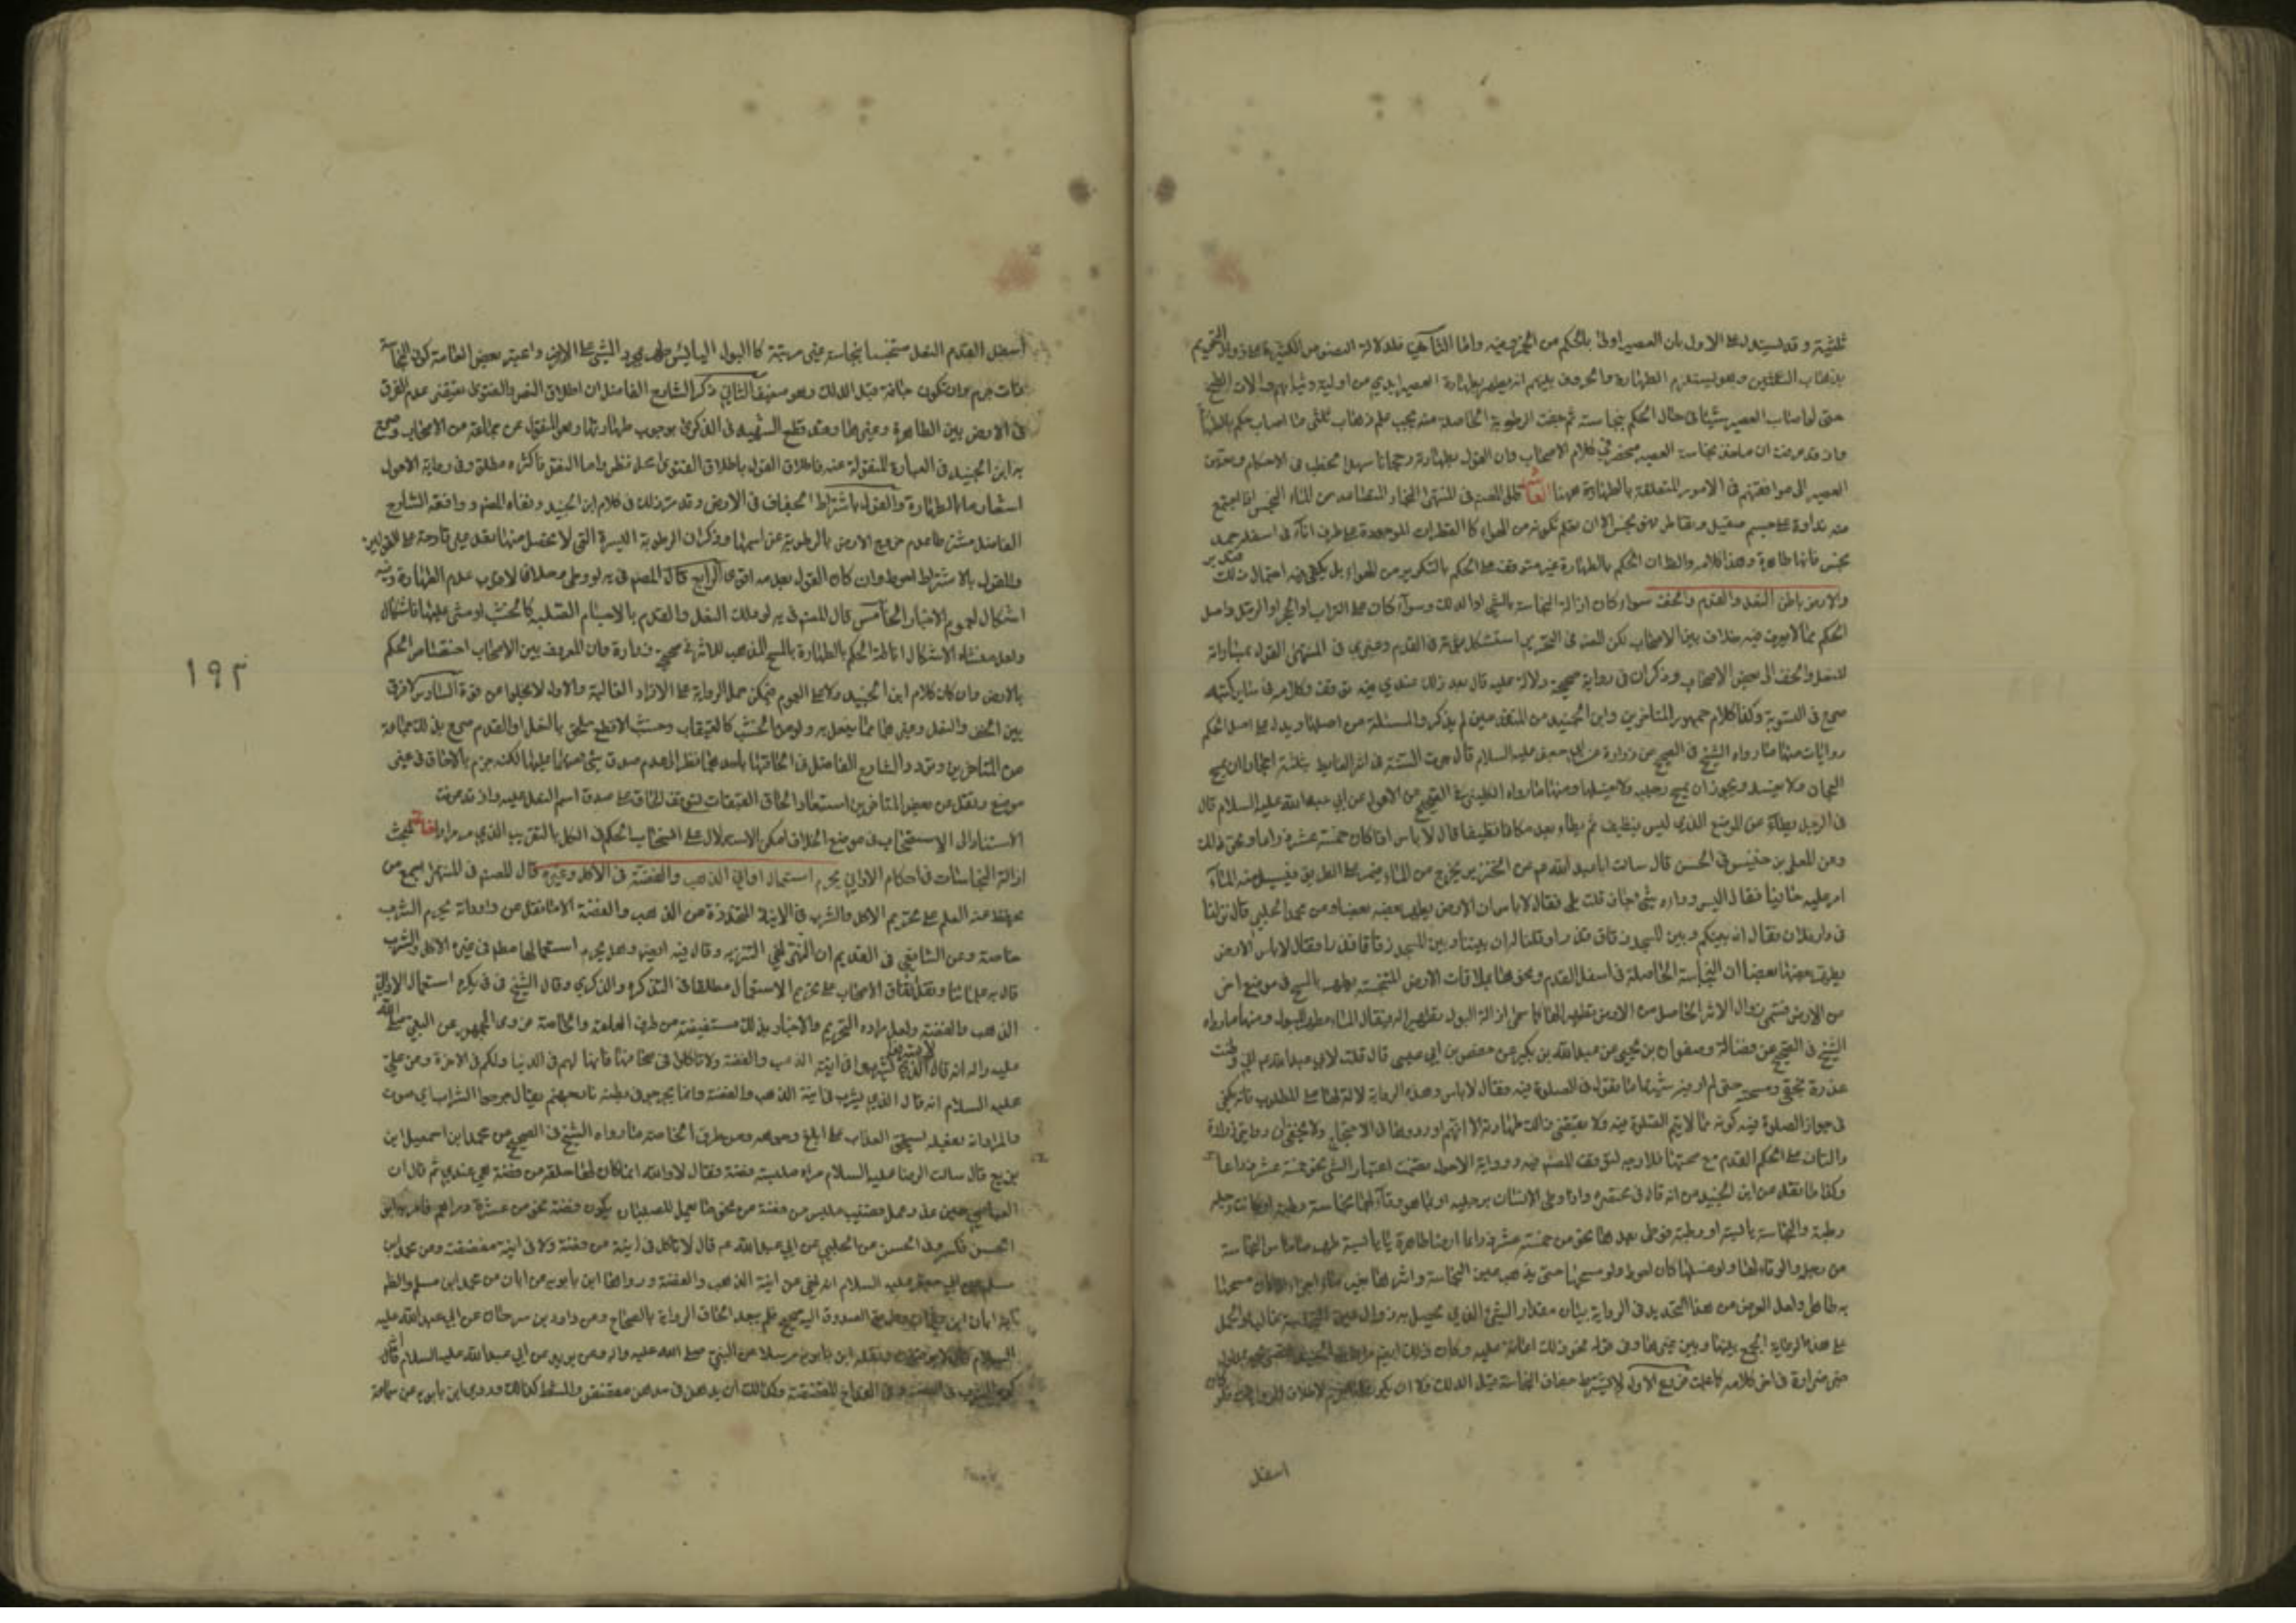 ثلثيه و قد يستدل على الاول بان العصير اولى بالحكم من الخمر وغيره واما الثاني فلدلالة النصوص الكثيرة على زوال التحريم
بذهاب الثلثين وهو يستلزم الطهارة
حتى لو اصاب العصير شيئا في حال الحكم بنجاسته ثم جفت الرطوبة الحاصلة منه يجب علم ذهاب ثلثي ما اصاب حكم بالطهارة
واذ قد عرفت ان نجاسة العصير في كلام الاصحاب وان القول بطهارته
العصير الى موافقتهم في الامور المتعلقة بالطهارة ههنا العاشر قال المصنف في المنتهى البخار المتصاعد من الماء النجس اذا اجتمع
منه نداوة على جسم صقيل وتقاطر فهو نجس الا ان يعلم تكونه من الهواء كالقطرات الموجودة على طرف اناء في اسفله جمد
نجس فانها طاهرة وهذا كلامه والظ ان الحكم بالطهارة غير متوقف على الحكم بالتكون من الهواء بل يكفي فيه احتمال ذلك
والارض باطن النعل والقدم والخف سواء كان ازالة النجاسة بالمشي او الدلك وسواء كان على التراب او الحجر او الرمل واصل
الحكم مما لا يعرف فيه خلاف بين الاصحاب لكن المصنف في التحرير استشكل في القدم وعزى في المنتهى القول بمساواته
للنعل والخف الى بعض الاصحاب وذكر ان في رواية صحيحة دلالة عليه قال بعد ذلك عندي فيه توقف وكلامه في سائر كتبه
صريح في التسوية وكذا كلام جمهور المتاخرين وابن الجنيد من المتقدمين لم يذكروا المسئلة من اصلها ويدل على اصل الحكم
روايات منها ما رواه الشيخ في الصحيح عن زرارة عن ابي جعفر عليه السلام قال جرت السنة في اثر الغائط بثلثة احجار ان يمسح
العجان ولا يغسله ويجوز ان يمسح رجليه ولا يغسلهما ومنها ما رواه الكليني في الصحيح عن الاحول عن ابي عبد الله عليه السلام قال
في الرجل يطاء من الموضع الذي ليس بنظيف ثم يطاء بعده مكانا نظيفا قال لا باس اذا كان خمسة عشر ذراعا او نحو ذلك
وعن المعلى بن خنيس في الحسن قال سالت ابا عبد الله عم عن الخنزير يخرج من الماء فيمر على الطريق فيسيل منه الماء
امر عليه حافيا فقال اليس وراءه شيء جاف قلت بلى فقال لا باس ان الارض يطهر بعضه بعضا وعن محمد الحلبي قال نزلنا
في دار فلان فقال ان بينكم وبين المسجد زقاق قذر او قلنا له ان بيننا وبين المسجد زقاقا قذرا فقال لا باس الارض
يطهر بعضها بعضا ان النجاسة الحاصلة في اسفل القدم ونحوها بملاقات الارض المتنجسة يطهر بالمسح في موضع اخر
من الارض زوال الاثر الحاصل من الارض تطهيرا لها كما سمى ازالة البول تطهيرا له فيقال الماء مطهر للبول ومنها ما رواه
الشيخ في الصحيح عن فضالة وصفوان بن يحيى عن عبد الله بن بكير عن حفص بن ابي عيسى قال قلت لابي عبد الله عم اني وطئت
عذرة بخفي ومسحته حتى لم ار فيه شيئا ما تقول في الصلوة فيه فقال لا باس وهذه الرواية لا دلالة لها على المطلوب فانه يكفي
في جواز الصلوة فيه كونه مما لا يتم الصلوة فيه ولا يقتضي ذلك طهارته الا انهم اوردوها في الاحتجاج ولا يخفى ان روايتي زرارة
وكذا ما نقله عن ابن الجنيد من انه قال في مختصره واذا وطى الانسان برجليه او بما هو وقاء لهما نجاسة رطبة او كانت رجليه
رطبة والنجاسة يابسة او رطبة فوطى بعدها نحو من خمسة عشر ذراعا ارضا طاهرة يابسة طهر ما ماس النجاسة
من رجله والوقاء لها ولو غسلها كان احوط ولو مسحها حتى يذهب عين النجاسة واثرها بغير ماء اجزاه اذا كان مسحها
به طاهرا ولعل الغرض من هذا التحديد في الرواية بيان مقدار المشي الذي يحصل به زوال عين النجاسة غالبا
على هذه الرواية الجمع بينها وبين غيرها وفي قوله نحو ذلك اعانة عليه وكان ذلك
فروع الاول لا يشترط جفاف النجاسة قبل الدلك
اسفل
اسفل القدم النعل متنجسا بنجاسة غير مرئية كالبول اليابس طهر بمجرد المشي على الارض واعتبر بعض العامة كون النجاسة
ذات جرم وان تكون جافة قبل الدلك وهو ضعيف الثاني ذكر الشارح الفاضل ان اطلاق النص والفتوى يقتضي عدم الفرق
في الارض بين الطاهرة وغيرها وقد قطع الشهيد في الذكرى بوجوب طهارتها وهو المنقول عن جماعة من الاصحاب وصرح
به ابن الجنيد في العبارة المنقولة عنه فاطلاق القول باطلاق الفتوى محل نظر واما النص فاكثره مطلق وفي رواية الاحول
اشعار ما بالطهارة والقول باشتراط الجفاف في الارض وقد مر ذلك في كلام ابن الجنيد ونفاه المصنف ووافقه الشارح
الفاضل مشترطا عدم خروج الارض بالرطوبة عن اسمها وذكر ان الرطوبة اليسيرة التي لا يحصل منها تعد غير قادحة على القولين
والقول بالاشتراط احوط وان كان القول بعدمه اقوى الرابع قال المصنف في يه لو وطى وحلا فالاقرب عدم الطهارة وفيه
اشكال لعموم الاخبار الخامس قال المصنف في يه لو دلك النعل والقدم بالاجسام الصلبة كالخشب او مشى عليها فاشكال
ولعل منشاء الاشكال اناطة الحكم بالطهارة بالمسح المذهب للاثر في صحيحة زرارة وان المعروف بين الاصحاب اختصاص الحكم
بالارض وان كان كلام ابن الجنيد دالا على العموم فيمكن حمل الرواية على الافراد الغالبة والاول لا يخلو من قوة السادس لا فرق
بين الخف والنعل وغيرهما مما ينعل به ولو من الخشب كالقبقاب وخشبة الاقطع يلحق بالنعل او القدم صرح بذلك جماعة
من المتاخرين وتردد الشارح الفاضل في الحاقها باحدهما نظرا الى عدم صدق شيء منهما عليها لكنه جزم بالالحاق في غير
موضع ونقل عن بعض المتاخرين استبعاد الحاق القبقاب لتوقف الحاقه على صدق اسم النعل عليه واذ قد عرفت
الاستناد الى الاستصحاب في موضع الخلاف امكن الاستدلال على انسحاب الحكم في الكل بالتقريب الذي مر مرارا خاتمة لمبحث
ازالة النجاسات في احكام الاواني يحرم استعمال اواني الذهب والفضة في الاكل وغيره قال المصنف في المنتهى اجمع من
يحفظ عنه العلم على تحريم الاكل والشرب في الانية المتخذة من الذهب والفضة الا ما نقل عن داود انه يحرم الشرب
خاصة وعن الشافعي في القديم ان النهي نهي التنزيه وقال فيه ايضا وهل يحرم استعمالها مطلقا في غير الاكل والشرب
قال به علمائنا ونقل اتفاق الاصحاب على تحريم الاستعمال مطلقا في التذكرة والذكرى وقال الشيخ في ف يكره استعمال الاواني
الذهب والفضة ولعل مراده التحريم والاخبار بذلك مستفيضة من طرق العامة والخاصة فروى الجمهور عن النبي صلى الله
عليه واله انه قال لا تشربوا في انية الذهب والفضة ولا تاكلوا في صحافها فانها لهم في الدنيا ولكم في الاخرة وعن علي
عليه السلام انه قال الذي يشرب في انية الذهب والفضة وانما يجرجر في بطنه نار جهنم يقال جرجر الشراب اي صوت
والمراد انه يفعل ما يستحق العذاب على ابلغ وجوهه ومن طرق الخاصة ما رواه الشيخ في الصحيح عن محمد بن اسمعيل بن
بزيع قال سالت الرضا عليه السلام مراة ملبسة فضة فقال لا والله انما كان لها حلقة من فضة هي عندي ثم قال ان
العباس حين عذر عمل قضيب ملبس من فضة من نحو ما يعمل للصبيان يكون فضة نحو من عشرة دراهم فامر به ابو
الحسن فكسر وفي الحسن عن الحلبي عن ابي عبد الله عم قال لا تاكل في انية من فضة ولا في انية مفضضة وعن محمد بن
مسلم عن ابي جعفر عليه السلام انه نهي عن انية الذهب والفضة ورواها ابن بابويه عن ابان عن محمد بن مسلم والظ
وعن داود بن سرحان عن ابي عبد الله عليه
السلام ونقله ابن بابويه مرسلا عن النبي صلى الله عليه واله وعن بريد عن ابي عبد الله عليه السلام قال
كره الشرب في الفضة وفي القداح المفضضة وكذلك ان يدهن في مدهن مفضض والمشط كذلك وروى ابن بابويه عن سماعة
١٩٣